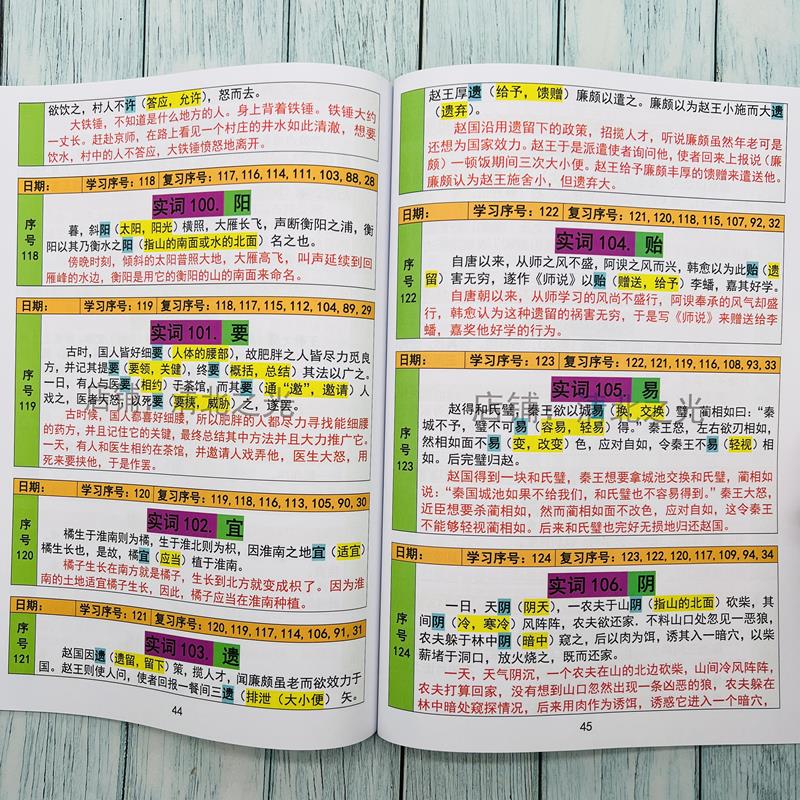 欲饮之，村人不许（答应，允许），怒而去。
大铁锤，不知道是什么地方的人。身上背着铁锤。铁锤大约
一丈长。赶赴京师，在路上看见一个村庄的井水如此清澈，想要
饮水，村中的人不答应，大铁锤愤怒地离开。
日期： 学习序号：118 复习序号：117, 116, 114, 111, 103, 88, 28
序号118
实词 100. 阳
暮，斜阳（太阳，阳光）横照，大雁长飞，声断衡阳之浦，衡
阳以其乃衡水之阳（指山的南面或水的北面）名之也。
傍晚时刻，倾斜的太阳普照大地，大雁高飞，叫声延续到回
雁峰的水边，衡阳是用它的衡阳的山的南面来命名。
日期： 学习序号：119 复习序号：118, 117, 115, 112, 104, 89, 29
序号119
实词 101. 要
古时，国人皆好细要（人体的腰部），故肥胖之人皆尽力觅良
方，并记其提要（要领，关健），终要（概括，总结）其法以广之。
一日，有人与医要（相约）于茶馆，而其要（通“邀”，邀请）人
戏之，医者大怒，以死要（要挟，威胁）之，遂罢。
古时候，国人都喜好细腰，所以肥胖的人都尽力寻找能细腰
的药方，并且记住它的关键，最终总结其中方法并且大力推广它。
一天，有人和医生相约在茶馆，并邀请人戏弄他，医生大怒，用
死来要挟他，于是作罢。
日期： 学习序号：120 复习序号：119, 118, 116, 113, 105, 90, 30
序号120
实词 102. 宜
橘生于淮南则为橘，生于淮北则为枳，因淮南之地宜（适宜）
橘生长也，是故，橘宜（应当）植于淮南。
橘子生长在南方就是橘子，生长到北方就变成枳了。因为淮
南的土地适宜橘子生长，因此，橘子应当在淮南种植。
日期： 学习序号：121 复习序号：120, 119, 117, 114, 106, 91, 31
序号121
实词 103. 遗
赵国因遗（遗留，留下）策，揽人才，闻廉颇虽老而欲效力于
国。赵王则使人问，使者回报一餐间三遗（排泄（大小便） 矢。
44
赵王厚遗（给予，馈赠）廉颇以遣之。廉颇以为赵王小施而大遗
（遗弃）。
赵国沿用遗留下的政策，招揽人才，听说廉颇虽然年老可是
还想为国家效力。赵王于是派遣使者询问他，使者回来上报说（廉
颇）一顿饭期间三次大小便。赵王给予廉颇丰厚的馈赠来遣送他。
廉颇认为赵王施舍小，但遗弃大。
日期： 学习序号：122 复习序号：121, 120, 118, 115, 107, 92, 32
序号122
实词 104. 贻
自唐以来，从师之风不盛，阿谀之风而兴，韩愈以为此贻（遗
留）害无穷，遂作《师说》以贻（赠送，给予）李蟠，嘉其好学。
自唐朝以来，从师学习的风尚不盛行，阿谀奉承的风气却盛
行，韩愈认为这种遗留的祸害无穷，于是写《师说》来赠送给李
蟠，嘉奖他好学的行为。
日期： 学习序号：123 复习序号：122, 121, 119, 116, 108, 93, 33
序号123
实词 105. 易
赵得和氏璧，秦王欲以城易（换，交换）璧，蔺相如曰：“秦
城不予，璧不可易（容易，轻易）得。”秦王怒，左右欲刃相如，
然相如面不易（变，改变）色，应对自如，令秦王不易（轻视）相
如。后完璧归赵。
赵国得到一块和氏璧，秦王想要拿城池交换和氏璧，蔺相如
说：“秦国城池如果不给我们，和氏璧也不容易得到。”秦王大怒，
近臣想要杀蔺相如，然而蔺相如面不改色，应对自如，这令秦王
不能够轻视蔺相如。后来和氏璧也完好无损地归还赵国。
日期： 学习序号：124 复习序号：123, 122, 120, 117, 109, 94, 34
序号124
实词 106. 阴
一日，天阴（阴天），一农夫于山阴（指山的北面）砍柴，其
间阴（冷，寒冷）风阵阵，农夫欲还家．不料山口处忽见一恶狼，
农夫躲于林中阴（暗中）窥之，后以肉为饵，诱其入一暗穴，以柴
薪堵于洞口，放火烧之，既而还家。
一天，天气阴沉，一个农夫在山的北边砍柴，山间冷风阵阵，
农夫打算回家，没有想到山口忽然出现一条凶恶的狼，农夫躲在
林中暗处窥探情况，后来用肉作为诱饵，诱惑它进入一个暗穴，
45